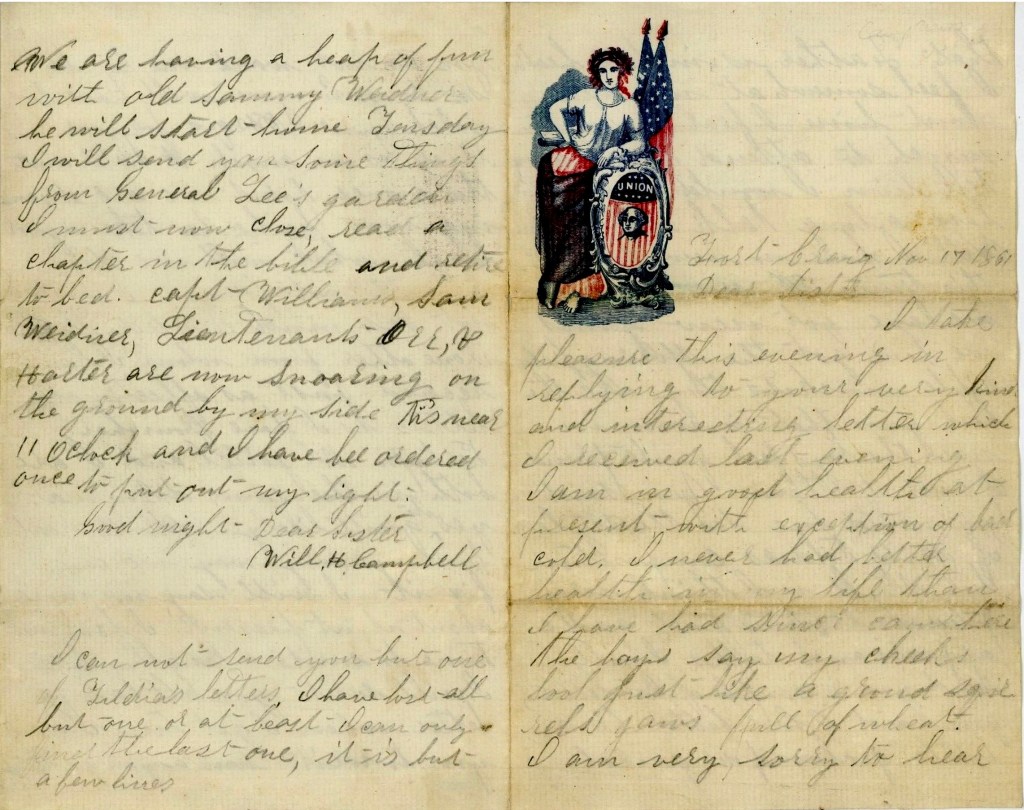 We are having a heap of fun
with old Sammy Weidner
he will start home Tuesday
I will send you some things
from General Lee's garden
I must now close, read a
chapter in the bible and retire
to bed. Capt Williams, Sam
Weidner, Lieutenants Orr, &
Harter are now snoaring on
the ground by my side tis near
11 Oclock and I have bee ordered
once to put out my light.
Good night Dear Sister
Will. H. Campbell
I can not send you but one
of letters, I have lost all
but one. or at least I can only
find the last one, it is but
a few lines
UNION
Fort Craig Nov 17 1861
Dear Sister
I take
pleasure this evening in
replying to your very kind
and interesting letter which
I received last evening
I am in good health at
present with exception of bad
cold. I never had better
health in my life than
I have had since came here
the boys say my cheeks
look just like a ground squir
rels jaws full of wheat.
I am very sorry to hear